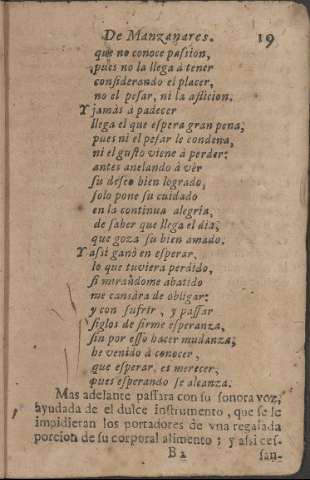 De Manzanares. 19
que no conoce passion,
pues no la llega à tener
considerando el placer,
no el pesar, ni la aflicion.
Y jamàs a padecer
llega el que espera gran pena,
pues ni el pesar le condena,
ni el gusto viene à perder:
antes anelando à vèr
su deseo bien logrado,
solo pone su cuidado
en la continua alegria,
de saber que llega el dia,
que goza su bien amado.
Y assi ganò en esperar,
lo que tuviera perdido,
si mirandome abatido
me cansàra de obligar:
y con sufrir, y passar
siglos de firme esperanza,
sin por esso hacer mudanza,
he venido à conocer,
que esperar, es merecer,
pues esperando se alcanza.
Mas adelante passara con su sonora voz,
ayudada de el dulce instrumento, que se le
impidieran los portadores de vna regalada
porcion de su corporal alimento; y assi ces-
B 2 san-